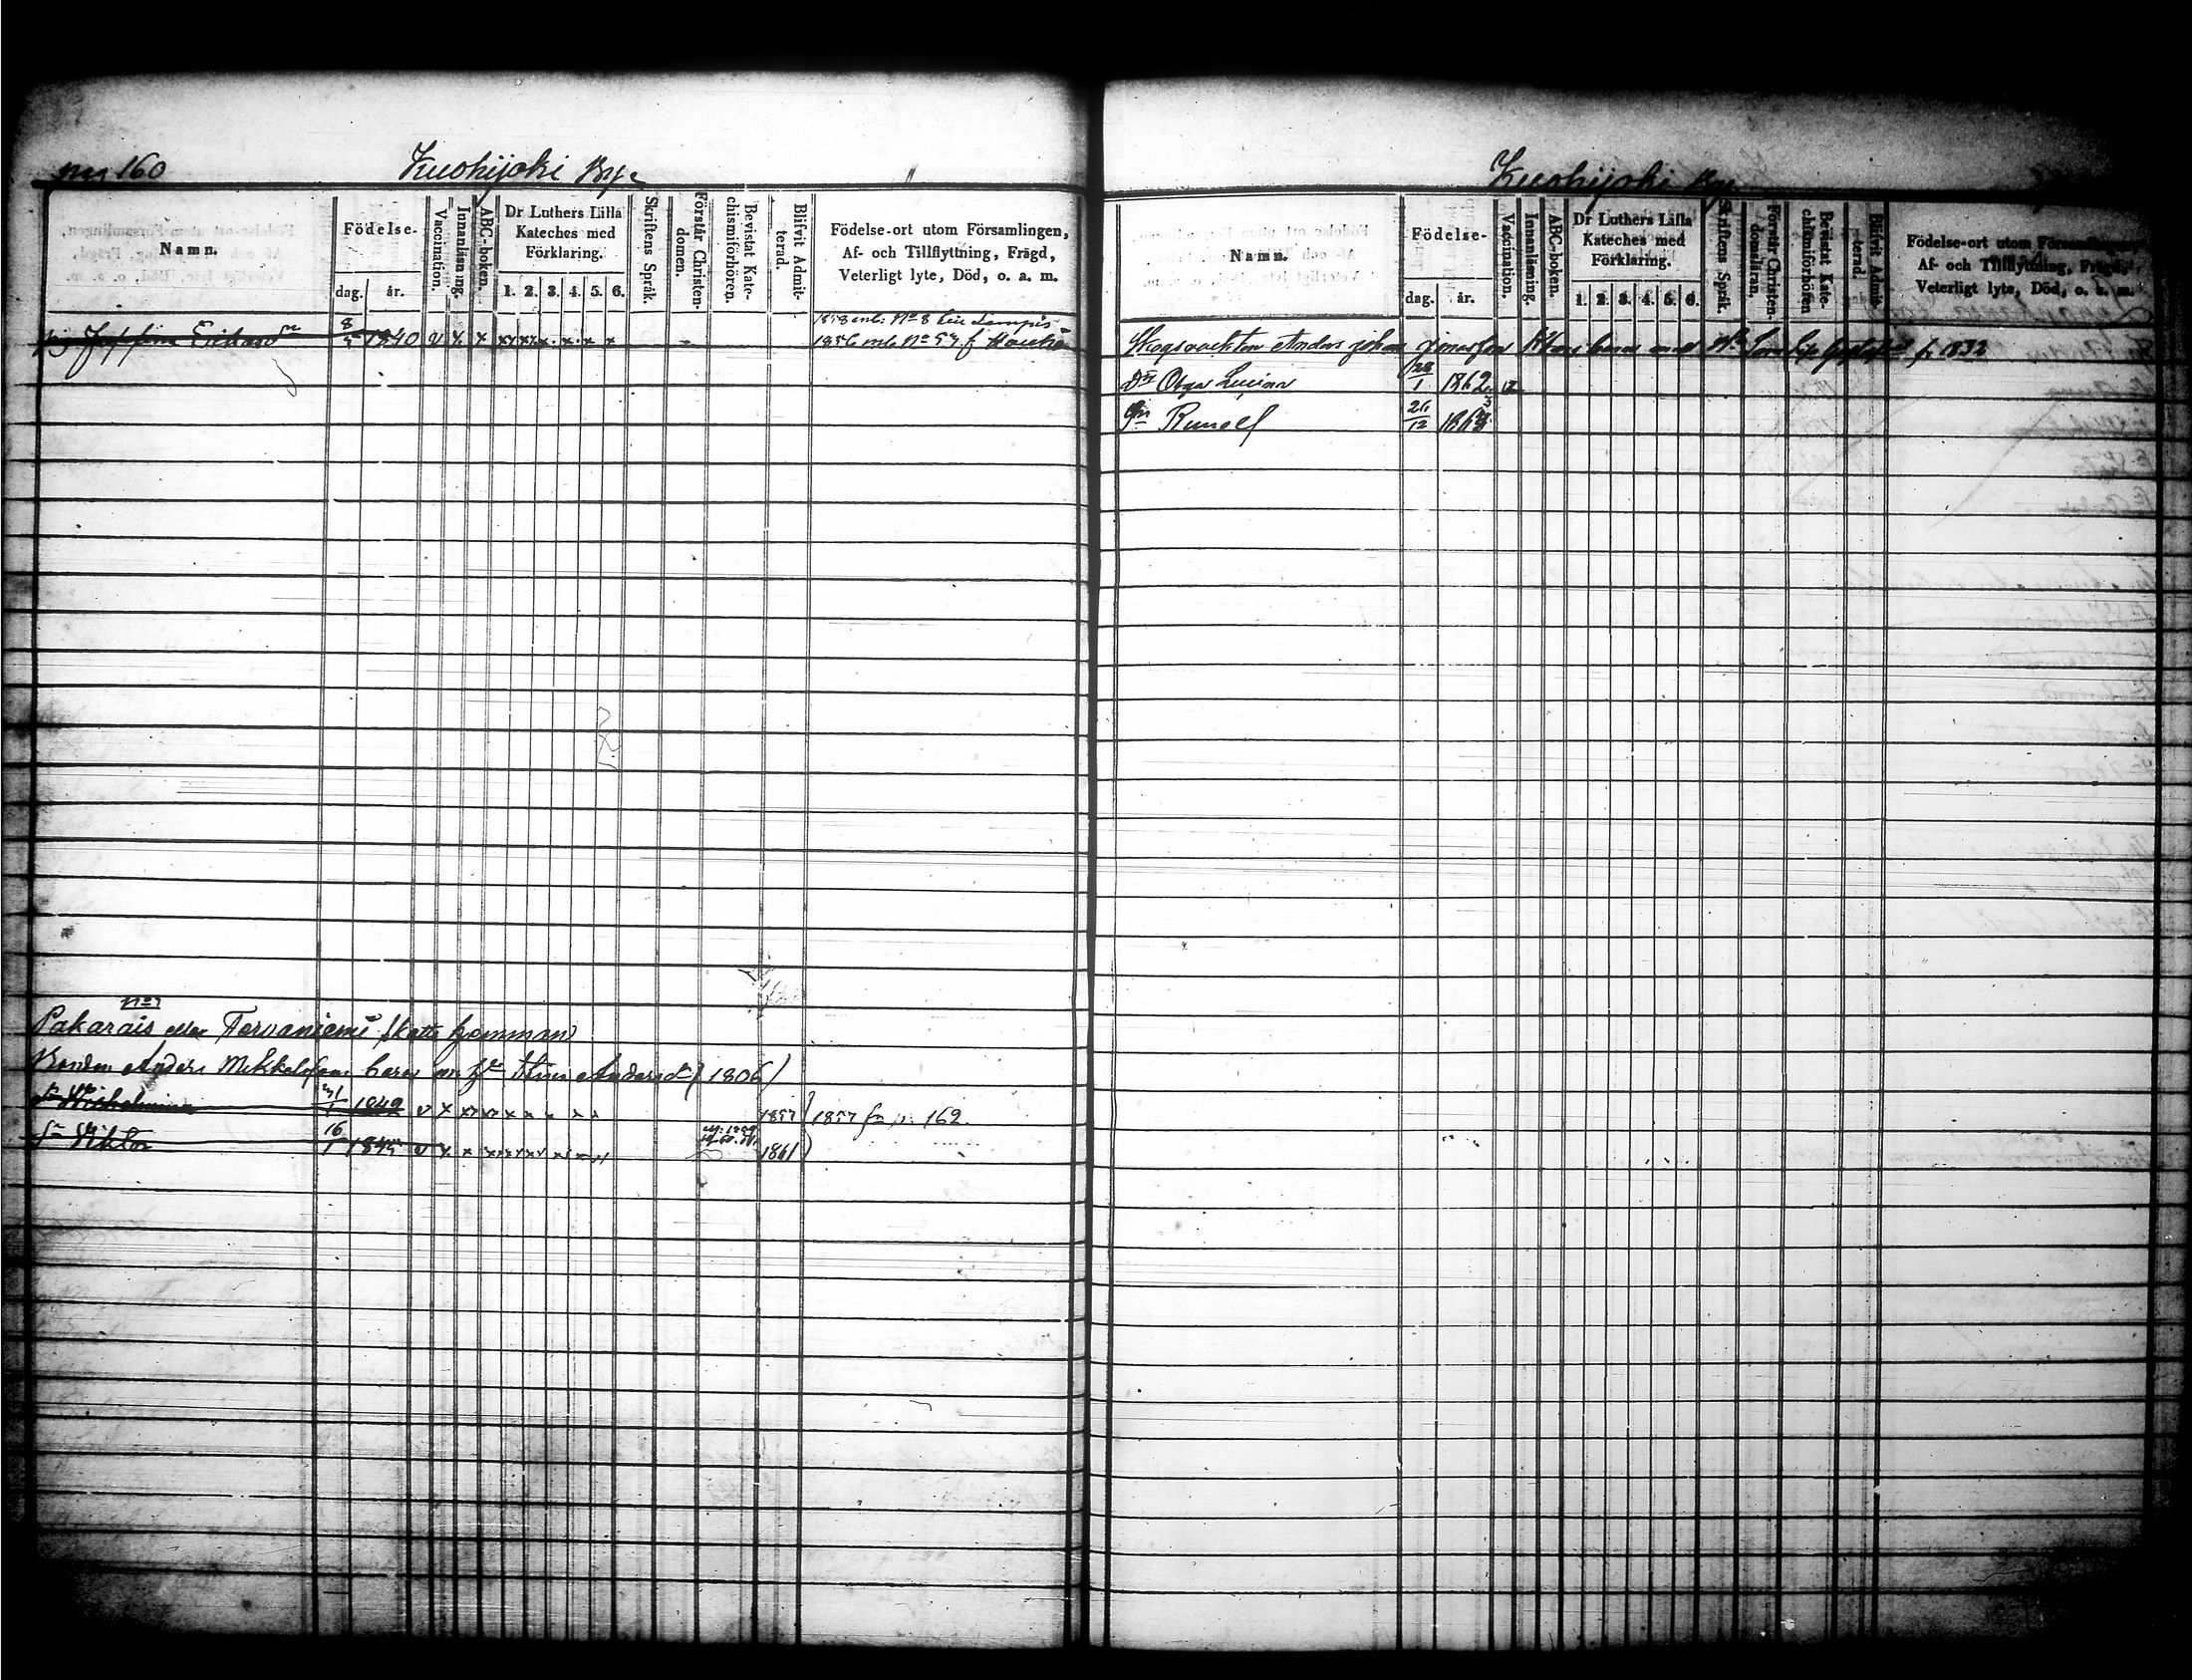 pag 160 Kuohijoki By.
Namn. Födelse- dag. år. Vaccination. Innanläsning. ABC-boken. Dr Luthers Lilla Kateches med Förklaring. 1. 2. 3. 4. 5. 6. Skriftens Språk. Förstår Christendomen. Bevistat Katechismiförhören. Blifvit Admitterad. Födelse-ort utom Församlingen, Af- och Tillflyttning, Frägd, Veterligt lyte, Död, o. a. m.
1858 mb. No 8
8/5 1840 v x x 1856 mb No 57 f
No 7
Pakarais eller Tervaniemi skatte hemman
Bonden Anders Mikkelsons barn m h Andersdr (1806)
Dr Wilhelmina 1842 v x 1857 1857 fr p. 162.
Sn Viktor 16/1 1845 v x x 1861
Kuohijoki By
Namn. Födelse- dag. år. Vaccination. Innanläsning. ABC-boken. Dr Luthers Lilla Kateches med Förklaring. 1. 2. 3. 4. 5. 6. Skriftens Språk. Förstår Christendomsläran. Bevistat Katechismiförhören Blifvit Admitterad. Födelse-ort utom Församlingen, Af- och Tillflyttning, Frägd, Veterligt lyte, Död, o. a. m.
Skogsvaktar Anders Johan barn med f. 1832
Dr Olga Lucina 1862
Sn Runolf 26/12 1863